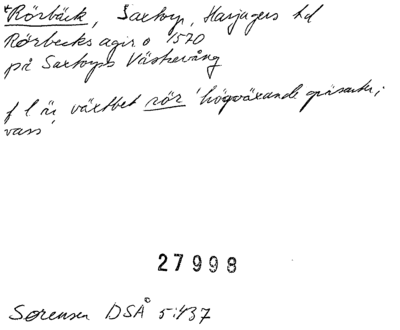 *Rörbäck, Saxtorp, Harjagers hd
Rörbecks agir o 1570
på Saxtorps Västervång
f l är växtbet rör 'högväxande gräsarter;
vass'
27998
Sørensen DSÅ 5:437